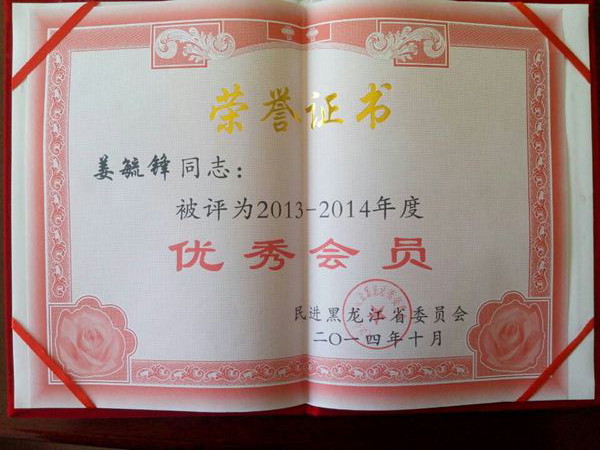 荣誉证书
姜毓锋同志：
被评为2013-2014年度
优秀会员
民进黑龙江省委员会
二〇一四年十月